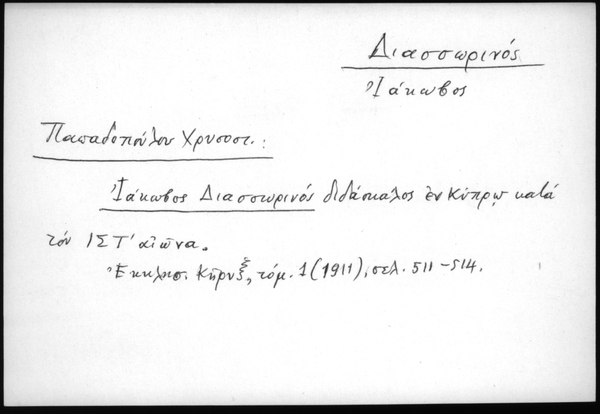 Διασσωρινός
Ἰάκωβος
Παπαδοπούλου Χρυσοστ.:
Ἰάκωβος Διασσωρινός διδάσκαλος ἐν Κύπρῳ κατά
τόν ΙΣΤ' αἰῶνα.
Ἐκκλησ. Κῆρυξ, τόμ. 1 (1911), σελ. 511-514.